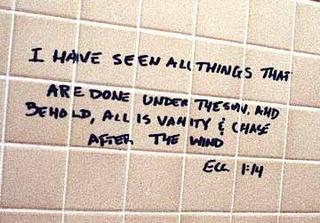 I HAVE SEEN ALL THINGS THAT
ARE DONE UNDER THE SUN, AND
BEHOLD, ALL IS VANITY & CHASE
AFTER THE WIND
ECC 1:14